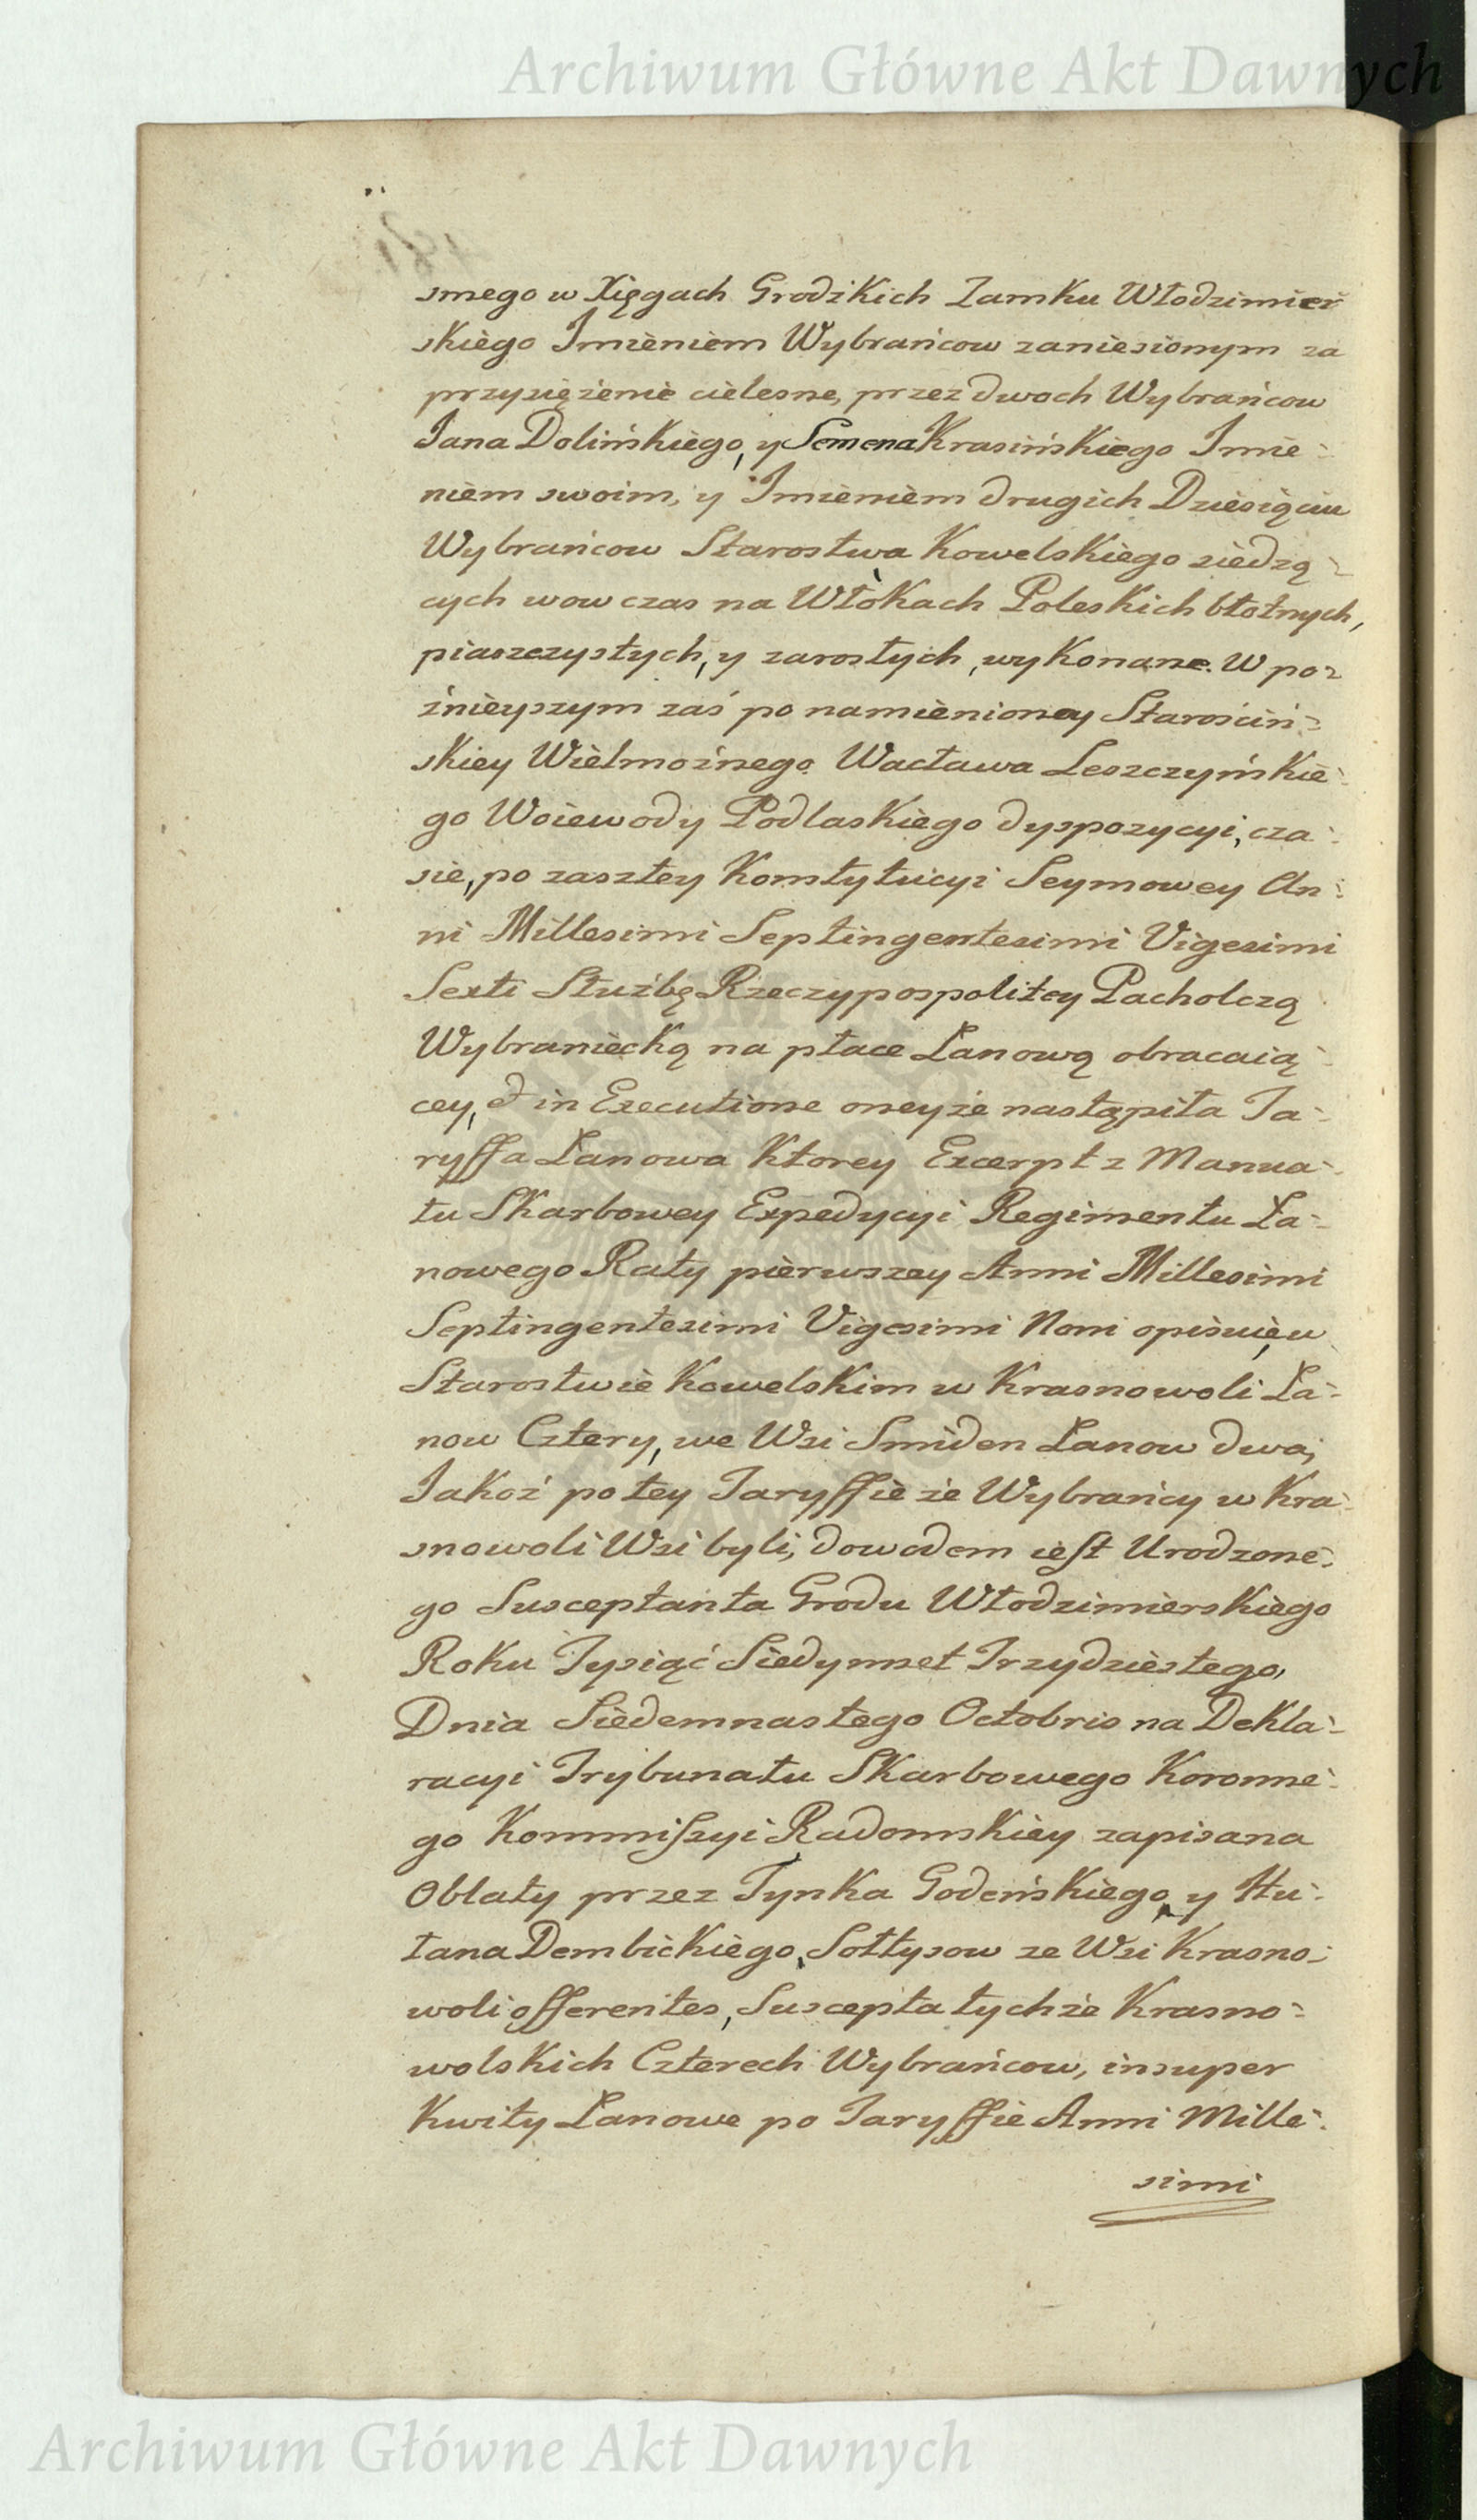 Archiwum Główne Akt Dawnych
smego w Xięgach Grodzkich Zamku Włodzimier
skiego Imieniem Wybrańcow zaniesionym za
przysiężenie cielesne, przez dwoch Wybrańcow
Jana Dolińskiego, y Semena Krasińskiego Imie-
niem swoim, y Imieniem drugich Dziesiąciu
Wybrańcow Starostwa Kowelskiego siedzą-
cych wowczas na Włokach Poleskich błotnych,
piaszczystych, y zarostych, wykonane. W po-
źnieyszym zaś po namienioney Starościń-
skiey Wielmożnego Wacława Leszczyńskie-
go Woiewody Podlaskiego dyspozycyi, cza-
sie, po zaszłey Konstytucyi Seymowey An-
ni Millesimi Septingentesimi Vigesimi
Sexti Służbę Rzeczypospolitey Pacholczą
Wybraniecką na płace Łanową obracaią-
cey, et in Executione oneyże nastąpiła Ta-
ryffa Łanowa Ktorey Excerpt z Manua-
łu Skarbowey Expedycyi Regimentu Ła-
nowego Raty pierwszey Anni Millesimi
Septingentesimi Vigesimi Noni opisuie, w
Starostwie Kowelskim w Krasnowoli Ła-
now Cztery, we Wsi Smiden Łanow dwa;
Jakoż po tey Taryffie że Wybrańcy w Kra-
snowoli Wsi byli, dowodem iest Urodzone-
go Susceptanta Grodu Włodzimierskiego
Roku Tysiąć Siedymset Trzydziestego,
Dnia Siedemnastego Octobris na Dekla-
racyi Trybunału Skarbowego Koronne-
go Kommiszyi Radomskiey zapisana
Oblaty przez Tynka Godeńskiego y Hu-
łana Dembickiego, Sołtysow ze Wsi Krasno-
woli offerentes, Suscepta tychże Krasno-
wolskich Czterech Wybrańcow, insuper
Kwity Łanowe po Taryffie Anni Mille-
simi
Archiwum Główne Akt Dawnych